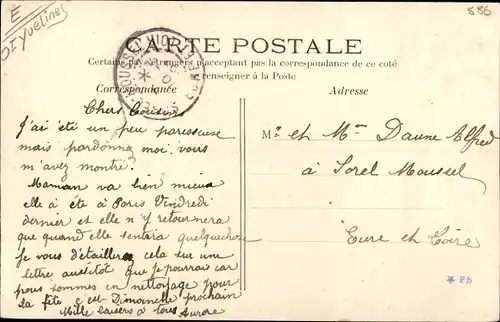 E
Dt Yvelines
586
CARTE POSTALE
Certains pays étrangers n'acceptant pas la correspondance de ce coté
se renseigner à la Poste
Correspondance
Adresse
Chers Cousins
J'ai été un peu paresseuse
mais pardonnez moi, vous
m'avez montré.
Maman va bien mieux
elle à été à Paris Vendredi
dernier et elle n'y retournera
que quand elle sentira quelquechose
Je vous d'étaillerez cela sur une
lettre aussitôt que je pourrais car
nous sommes en nettoyage pour
la fête c'est Dimanche prochain
Mille baisers à tous Aurore
Mr et Mme Daune Alfred
à Sorel Moussel
Eure et Loire
* PB